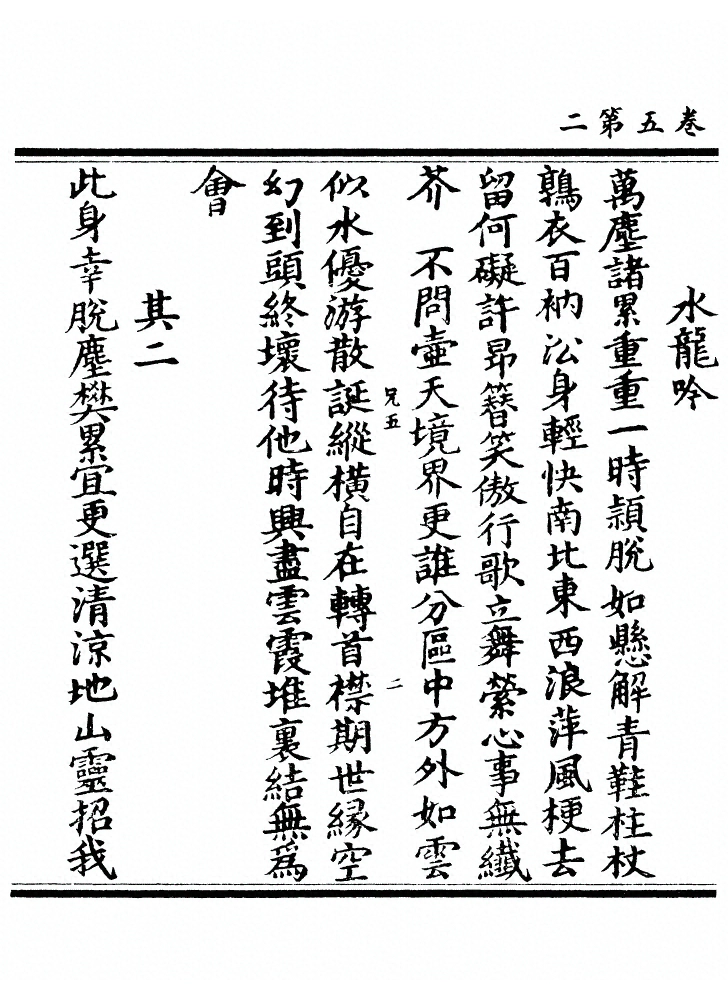 二第五卷
水龍吟
萬塵諸累重重一時頴脫如懸解青鞋柱杖
鶉衣百衲㳂身輕快南比東西浪萍風梗去
留何礙許昂簪笑傲行歌立舞縈心事無纖
芥　不問壷天境界更誰分區中方外如雲
兄五
二
似水優游散誕縱横自在轉首襟期世縁空
幻到頭終壞待他時興盡雲霞堆裏結無為
會
其二
此身幸脫塵樊累宜更選清涼地山靈招我